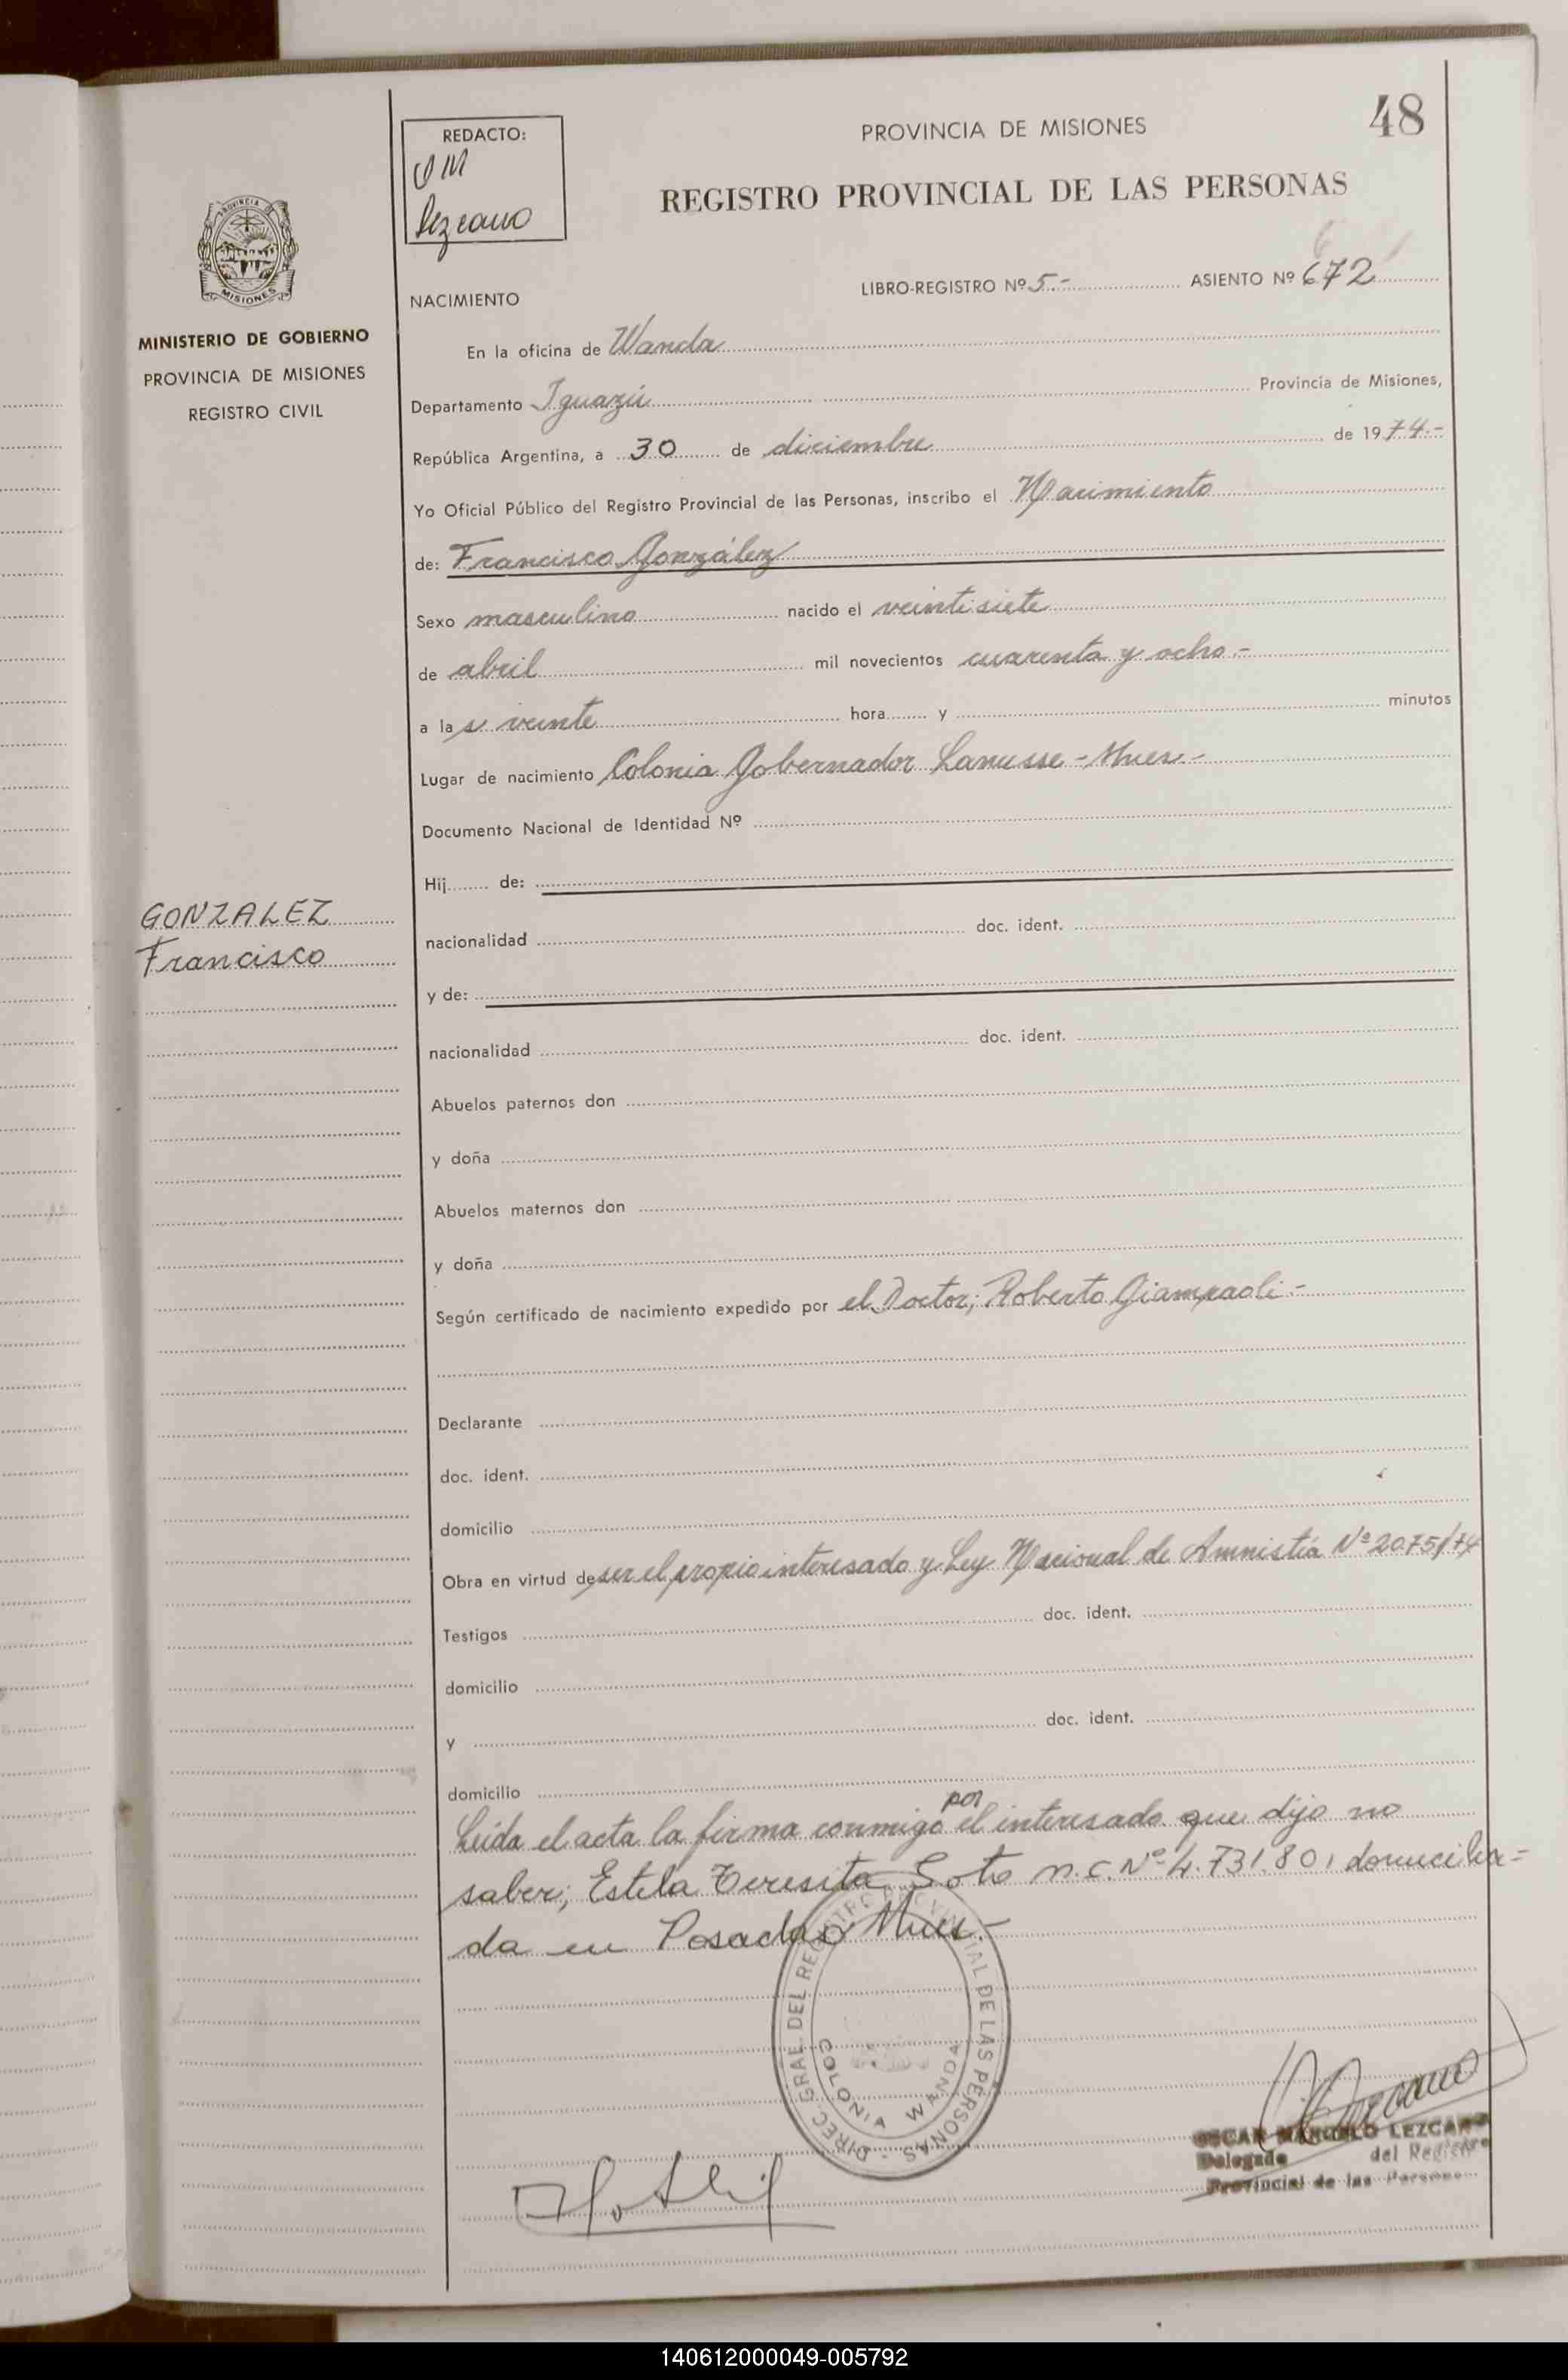 48
PROVINCIA DE MISIONES
REGISTRO PROVINCIAL DE LAS PERSONAS
REDACTO:
OM
Lezcano
PROVINCIA DE
MISIONES
MINISTERIO DE GOBIERNO
PROVINCIA DE MISIONES
REGISTRO CIVIL
NACIMIENTO
LIBRO-REGISTRO Nº 5.- ASIENTO Nº 672
En la oficina de Wanda
Departamento Iguazú Provincia de Misiones,
República Argentina, a 30 de diciembre de 1974.-
Yo Oficial Público del Registro Provincial de las Personas, inscribo el Nacimiento
de: Francisco González
Sexo masculino nacido el veintisiete
de abril mil novecientos cuarenta y ocho.-
a las veinte hora y minutos
Lugar de nacimiento Colonia Gobernador Lanusse - Mnes.-
Documento Nacional de Identidad Nº
Hij de:
GONZALEZ
Francisco
nacionalidad doc. ident.
y de:
nacionalidad doc. ident.
Abuelos paternos don
y doña
Abuelos maternos don
y doña
Según certificado de nacimiento expedido por el Doctor; Roberto Giampaoli.-
Declarante
doc. ident.
domicilio
Obra en virtud de ser el propio interesado y Ley Nacional de Amnistía Nº 2075/74
Testigos doc. ident.
domicilio
y doc. ident.
domicilio
Leída el acta la firma conmigo por el interesado que dijo no
saber; Estela Teresita Soto M.C. Nº 4.731.801 domicilia=
da en Posadas Mnes.-
DIREC. GRAL. DEL REGISTRO PROVINCIAL DE LAS PERSONAS -
COLONIA WANDA
OSCAR MARCELO LEZCANO
Delegado del Registro
Provincial de las Personas
140612000049-005792